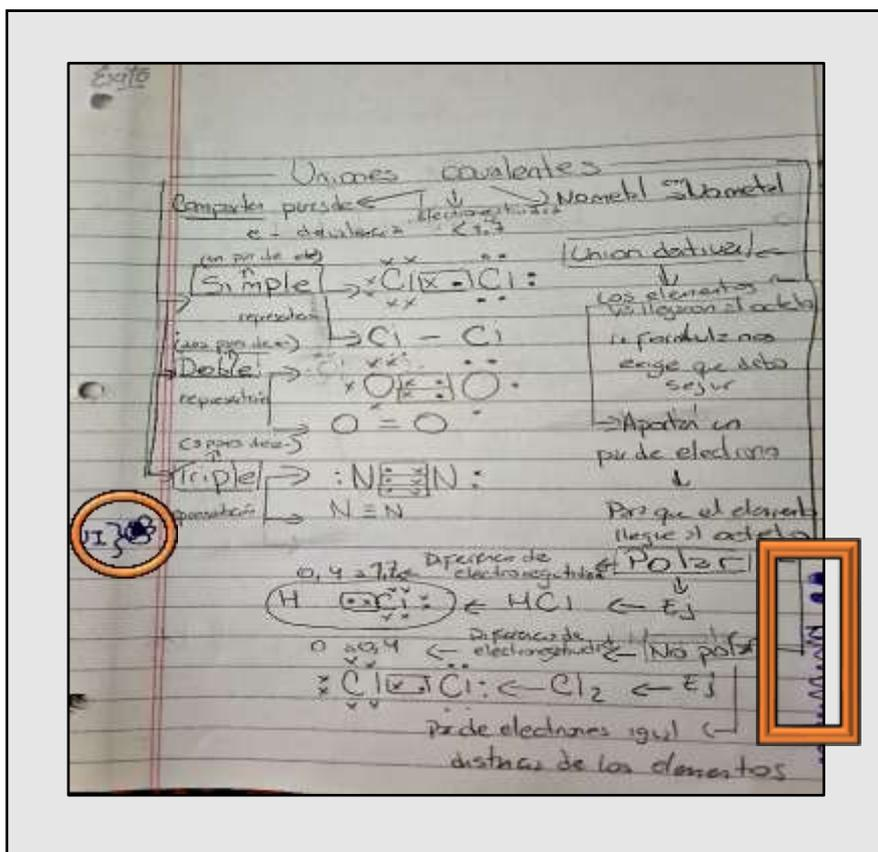 Exito
Uniones covalentes
Comparten pares de e - de valencia
electronegatividad < 1,7
No metal con No metal
(un par de e)
Simple
Cl Cl
representación
Cl - Cl
(dos par de e)
Doble
O O
representación
O = O
(3 pares de e-)
Triple
: N N :
representación
N ≡ N
Union dativa
Los elementos
no llegaron al octeto
la formula nos
exige que debo
seguir
Aportar un
par de electrones
Para que el elemento
llegue al octeto
Polar
Diferencia de
electronegatividad
0,4 a 1,7
Ej
HCl
H Cl
No polar
Diferencia de
electronegatividad
0 a 0,4
Ej
Cl2
Cl Cl :
Par de electrones igual
distancia de los elementos